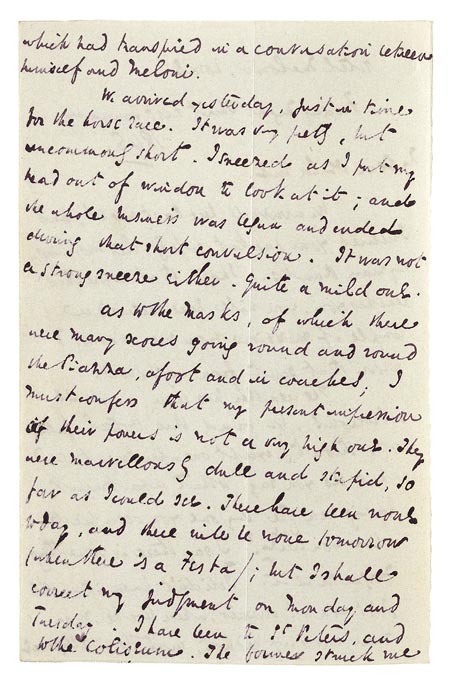 which had transpired in a conversation between
himself and Meloni.
We arrived yesterday, just in time
for the horse race. It was very pretty, but
uncommonly short. I sneezed as I put my
head out of window to look at it; and
the whole business was begun and ended
during that short convulsion. It was not
a strong sneeze either. Quite a mild one.
As to the Masks, of which there
were many scores going round and round
the Piazza, afoot and in coaches, I
must confess that my present impression
of their powers is not a very high one. They
were marvellously dull and stupid, so
far as I could see. There have been none
today, and there will be none tomorrow
(when there is a Festa); but I shall
correct my judgment on Monday and
Tuesday. I have been to St Peters, and
to the Coliseum. The former struck me